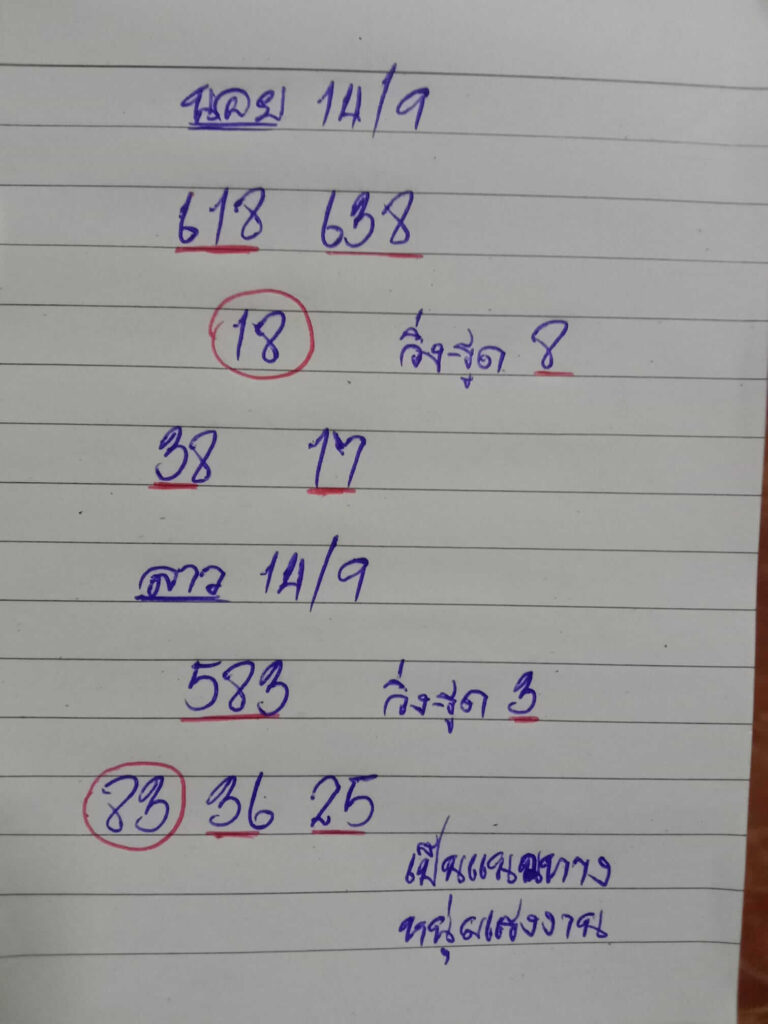 นอย 14/9
618 638
18 วิ่ง-รูด 8
38 17
ลาว 14/9
583 วิ่ง-รูด 3
83 36 25
เป็นแนวทาง
หนุ่มแรงงาน